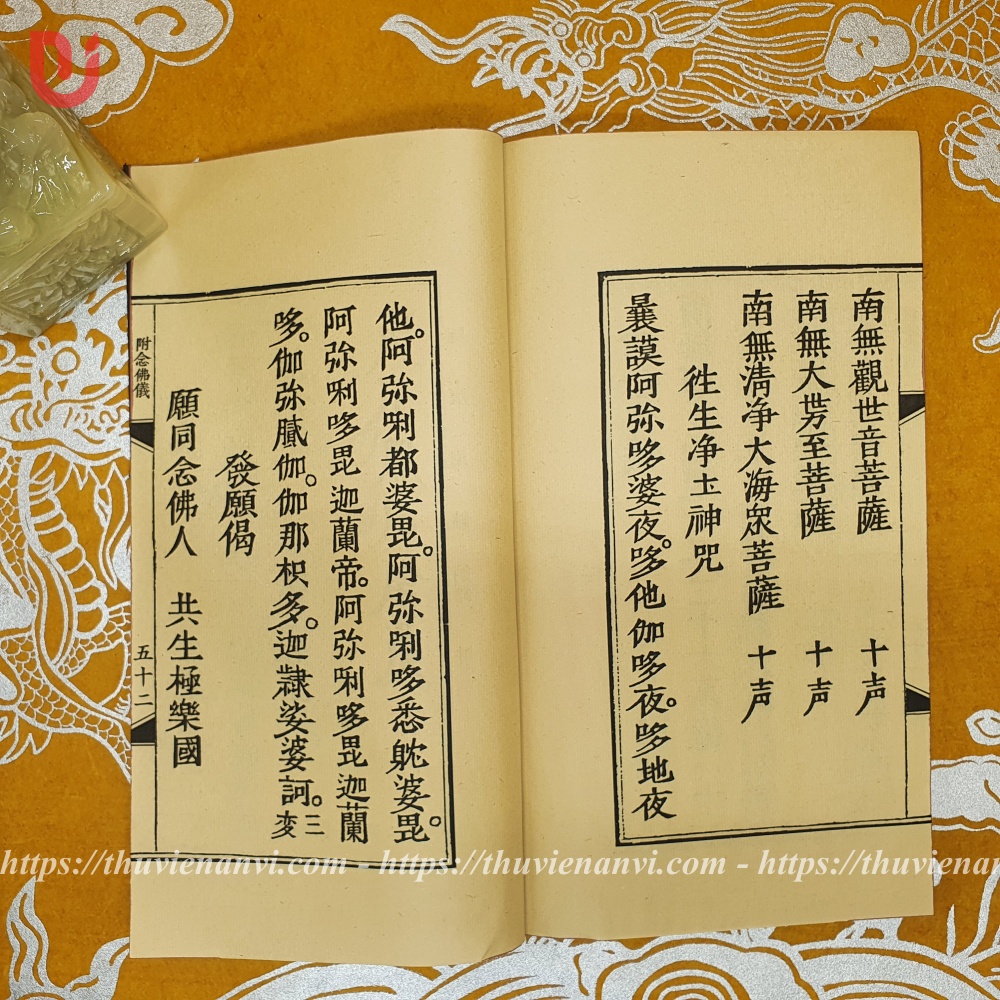 南無觀世音菩薩 十声
南無大势至菩薩 十声
南無清净大海众菩薩 十声
徃生净土神咒
曩謨阿弥哆婆夜。哆他伽哆夜。哆地夜
他。阿弥唎都婆毘。阿弥唎哆悉躭婆毘。
阿弥唎哆毘迦蘭帝。阿弥唎哆毘迦蘭
哆。伽弥膩伽。伽那枳多。迦隸娑婆訶。三变
發願偈
願同念佛人 共生極樂國
附念佛儀
五十二
https://thuvienanvi.com - https://thuvienanvi.com - https://thuviena